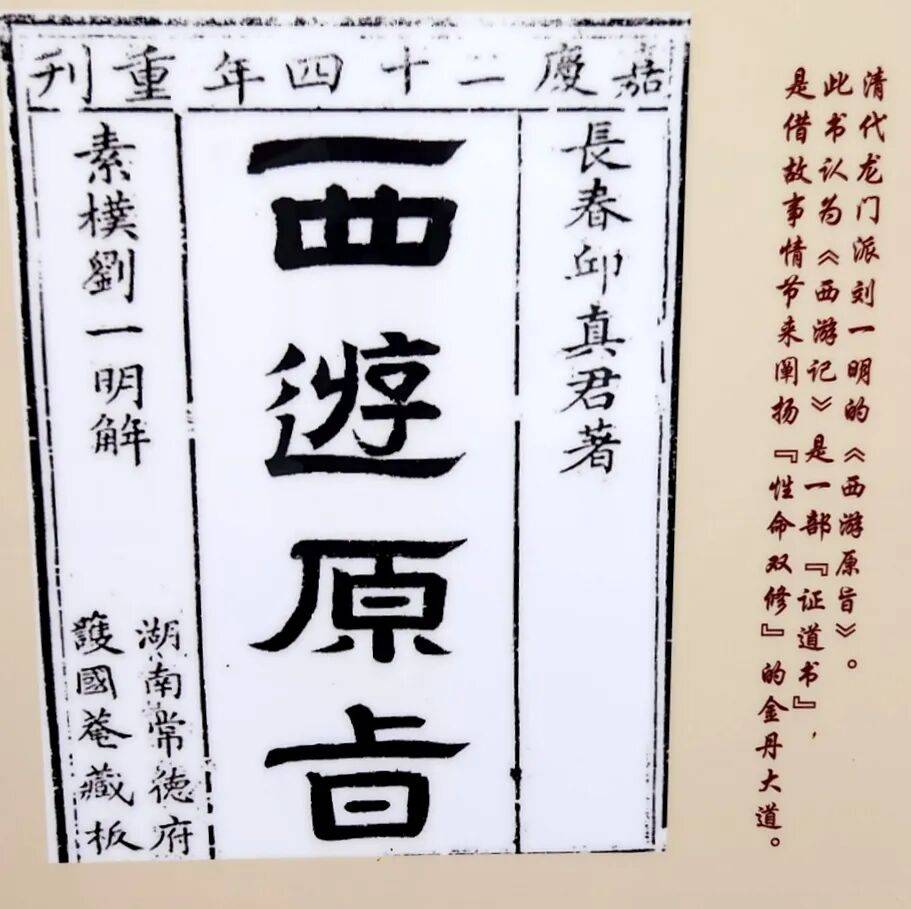 嘉慶二十四年重刊
長春邱真君著
西遊原旨
素樸劉一明解
湖南常德府
護國菴藏板
清代龙门派刘一明的《西游原旨》。
此书认为《西游记》是一部『证道书』，
是借故事情节来阐扬『性命双修』的金丹大道。